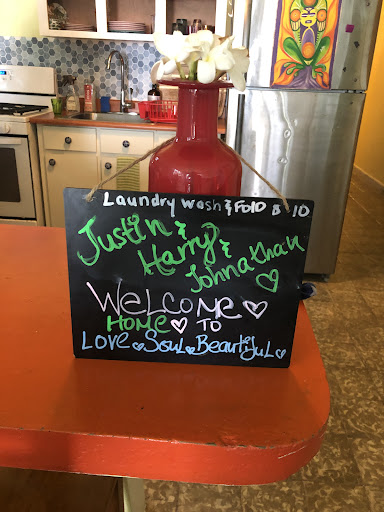 Laundry wash & FOLD $ 10
Justin &
Harry &
Johnathan
WELCOME
HOME TO
LOVE SOUL BEAUTIFUL